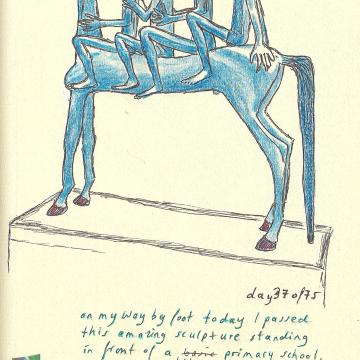 day 37 of 75
on my way by foot today I passed
this amazing sculpture standing
in front of a basic primary school.